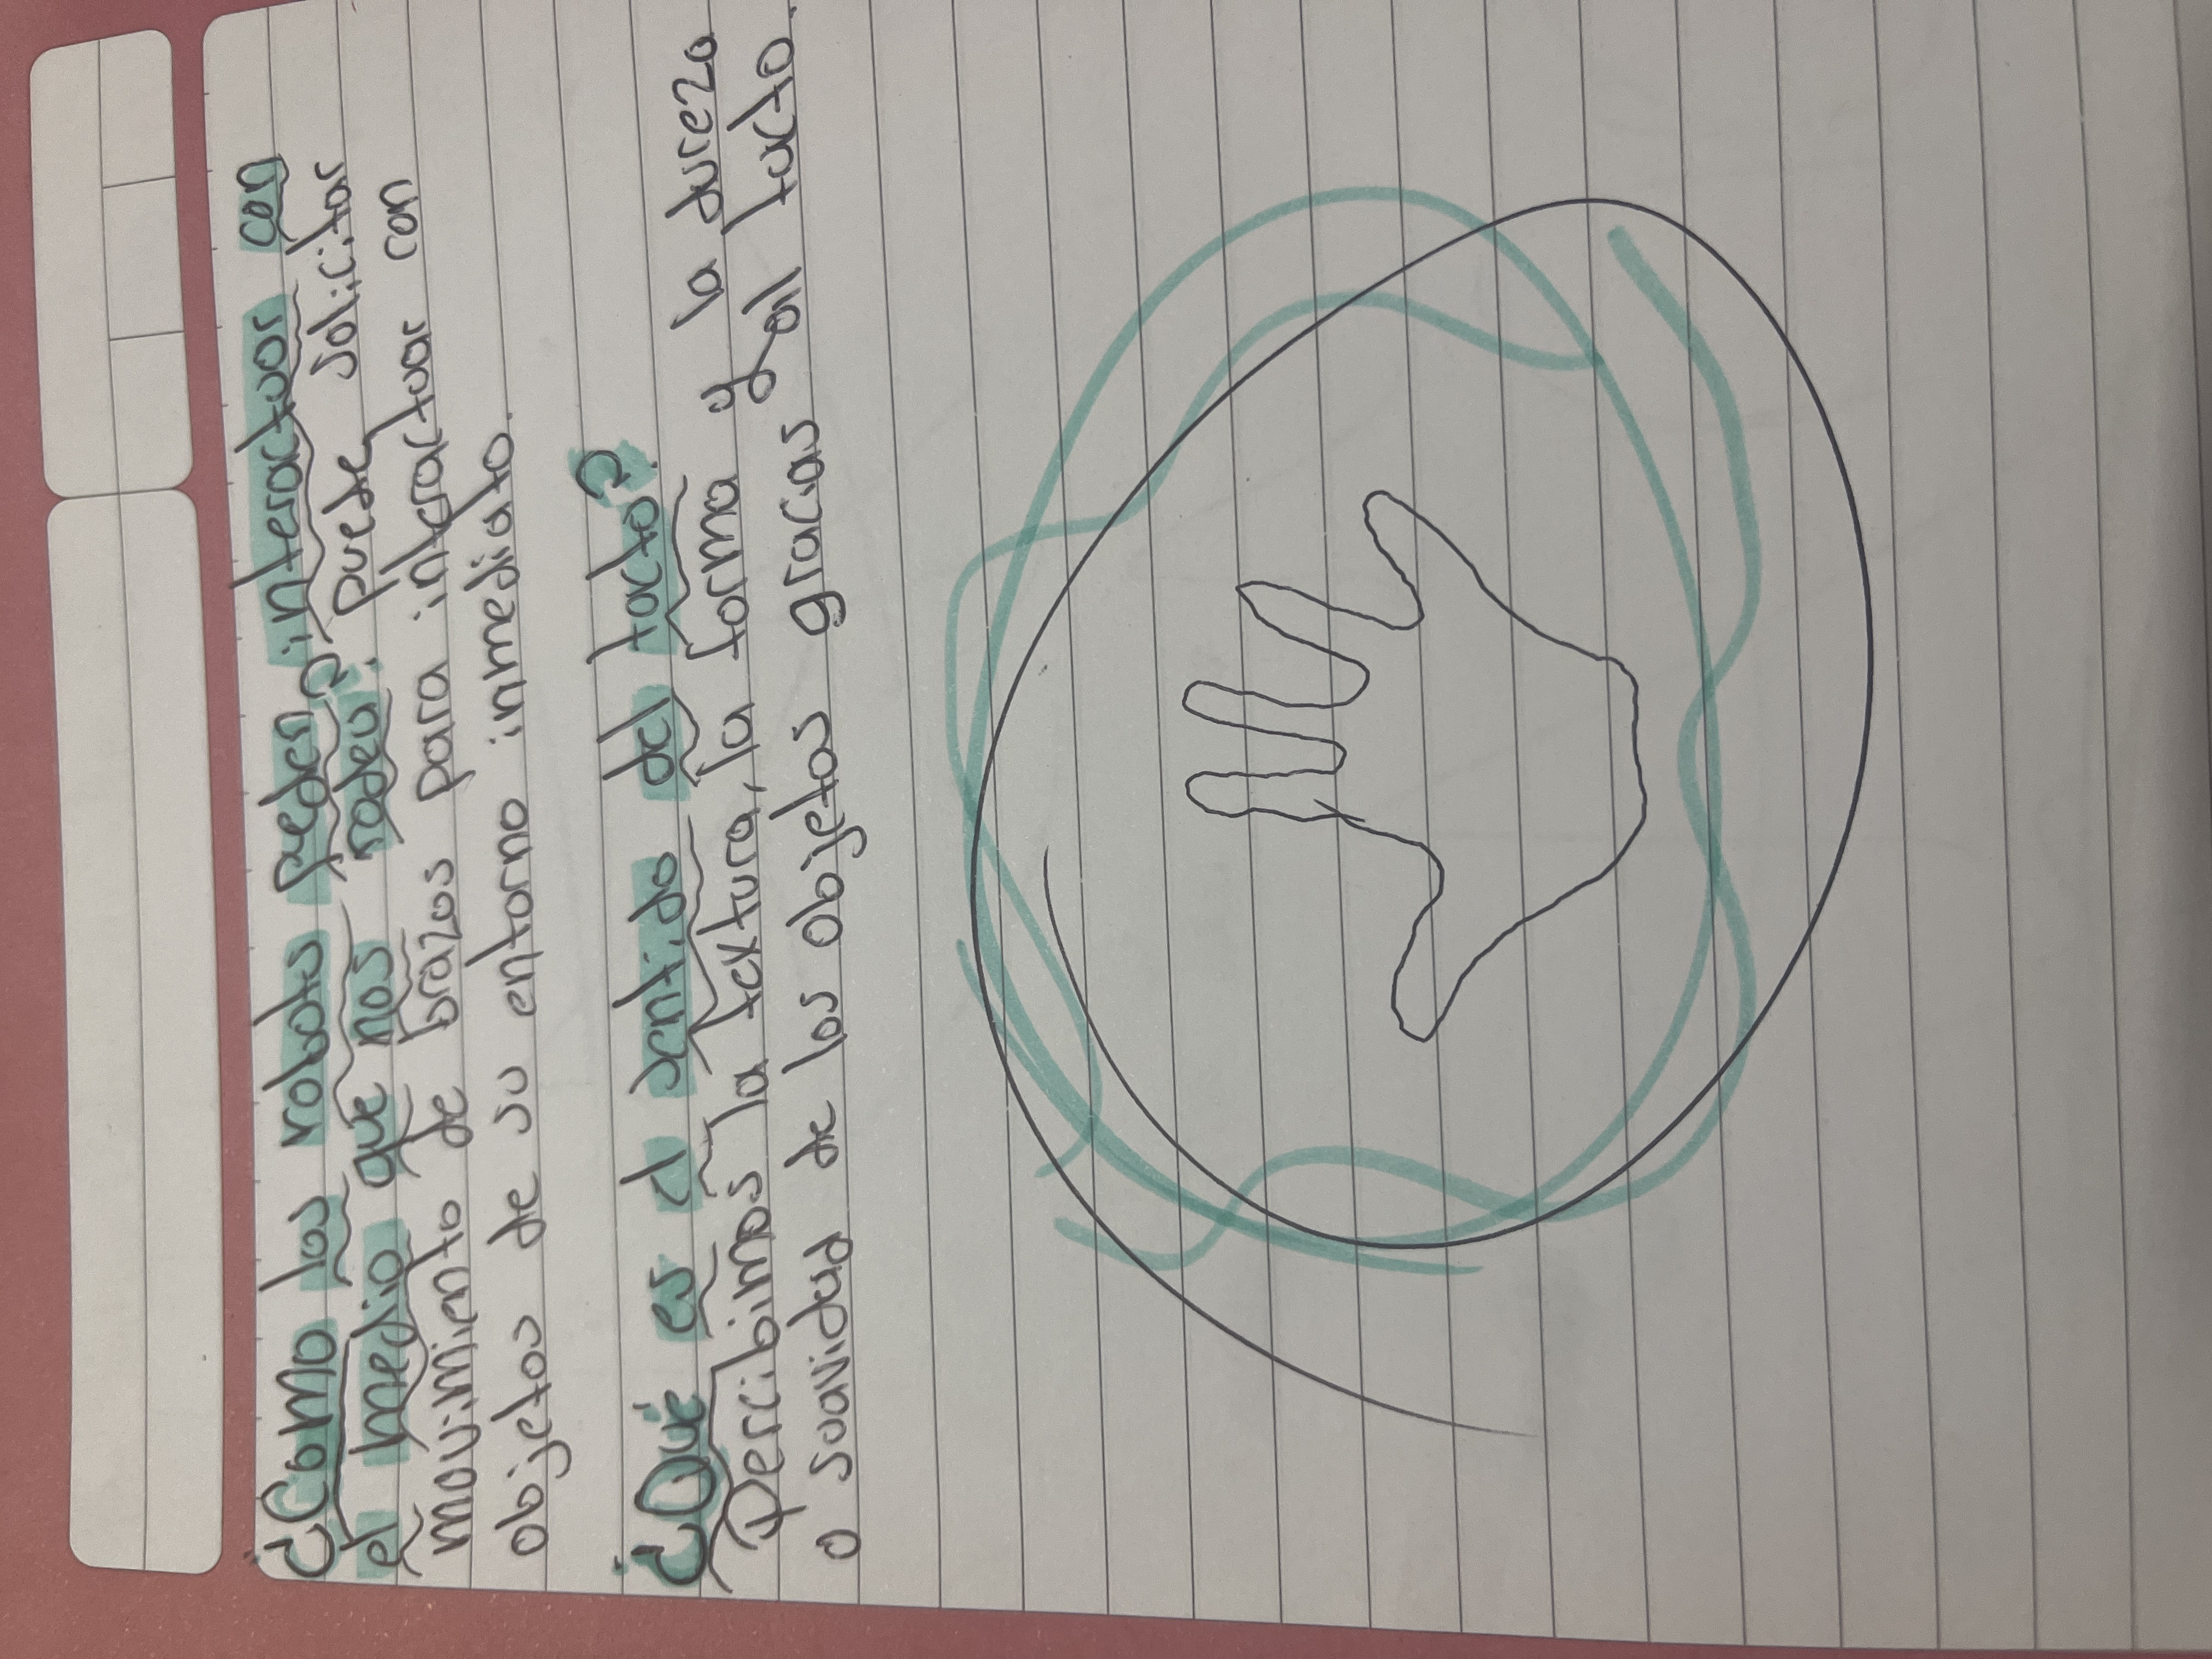 ¿Como los robots peden interactuar con
el medio que nos rodeu? puede solicitar
movimiento de brazos para interactuar con
objetos de su entorno inmediato.
¿Qué es el sentido del tacto?
Percibimos la textura, la forma y la dureza
o suavidad de los objetos gracias y al tacto.